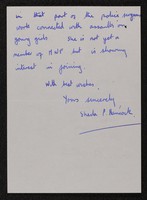 in that part of the police surgeons
work connected with assaults on
young girls. She is not yet a
member of MWF but is showing
interest in joining.
With best wishes,
Yours sincerely,
Sheila P.